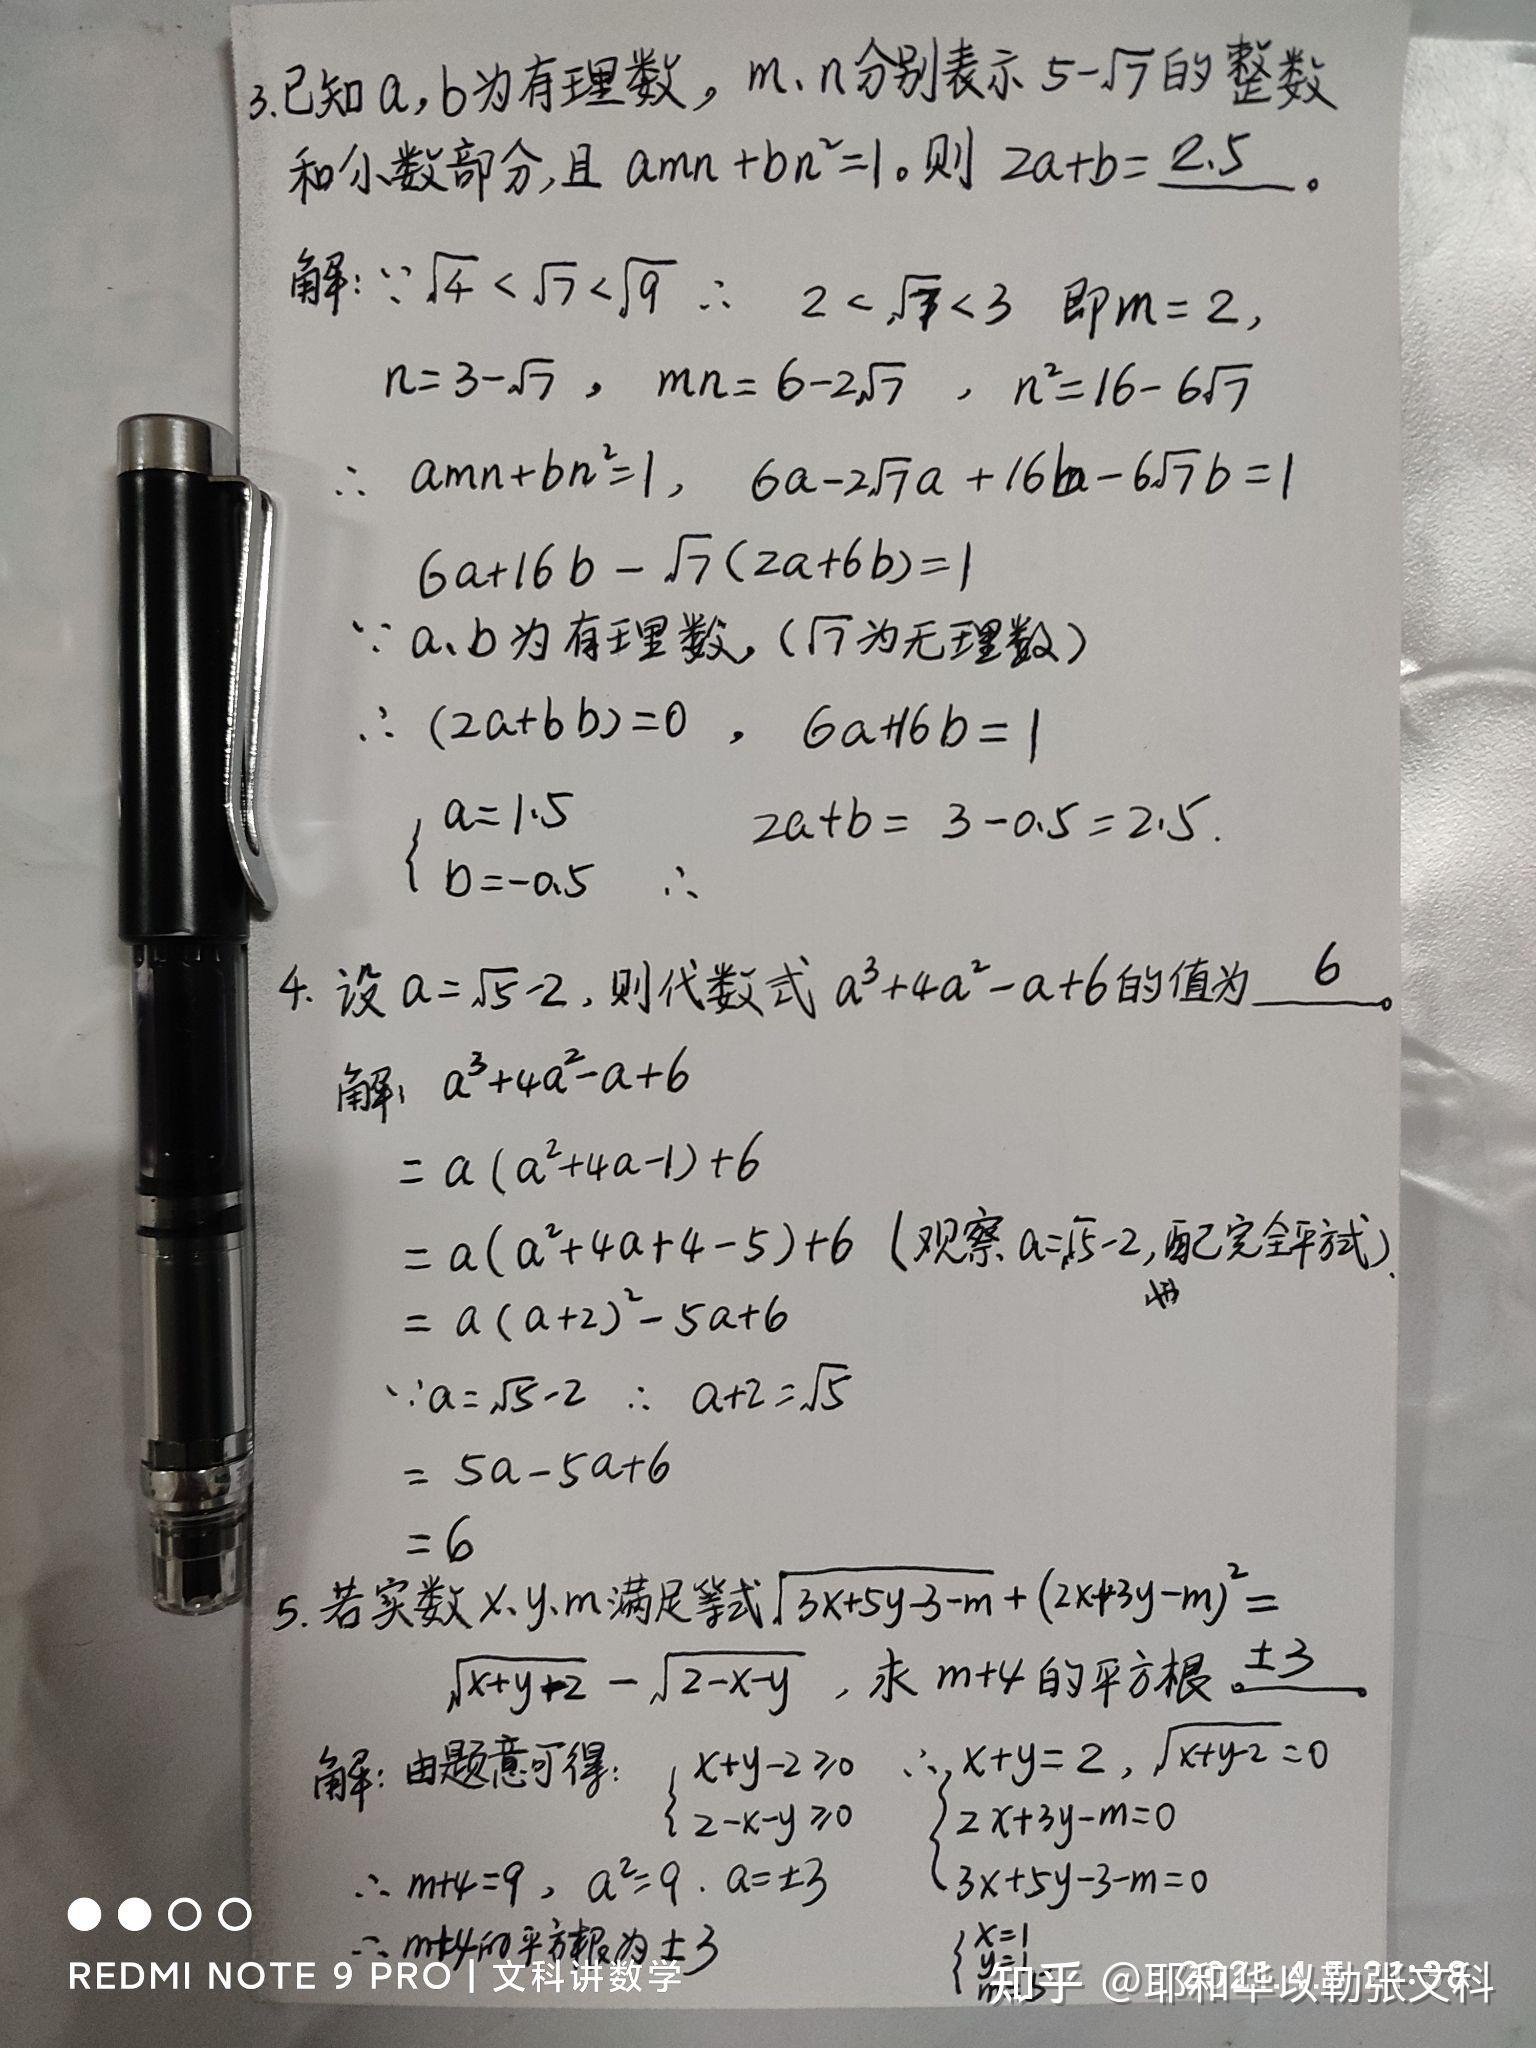 3.已知a,b为有理数，m、n分别表示5-√7的整数
和小数部分,且 amn+bn²=1。则 2a+b= 2.5 。
解:∵√4<√7<√9 ∴ 2<√7<3 即m=2,
n=3-√7 , mn=6-2√7 , n²=16-6√7
∴ amn+bn²=1, 6a-2√7a+16b-6√7b=1
6a+16b-√7(2a+6b)=1
∵ a、b为有理数,(√7为无理数)
∴ (2a+6b)=0 , 6a+16b=1
{ a=1.5 2a+b= 3-0.5=2.5.
b=-0.5 ∴
4. 设a=√5-2,则代数式a³+4a²-a+6的值为 6 。
解: a³+4a²-a+6
= a(a²+4a-1)+6
= a(a²+4a+4-5)+6 (观察a=√5-2,配完全平方式).
= a(a+2)²-5a+6
∵a=√5-2 ∴ a+2=√5
= 5a-5a+6
=6
5.若实数x、y、m满足等式√3x+5y-3-m+(2x+3y-m)²=
√x+y-2 - √2-x-y , 求m+4的平方根。 ±3
解:由题意可得: { x+y-2≥0 ∴ { x+y=2, √x+y-2=0
2-x-y≥0 2x+3y-m=0
∴ m+4=9, a²=9. a=±3 3x+5y-3-m=0
∴ m+4的平方根为±3 { x=1
y=1
REDMI NOTE 9 PRO | 文科讲数学
知乎 @耶和华以勒张文科